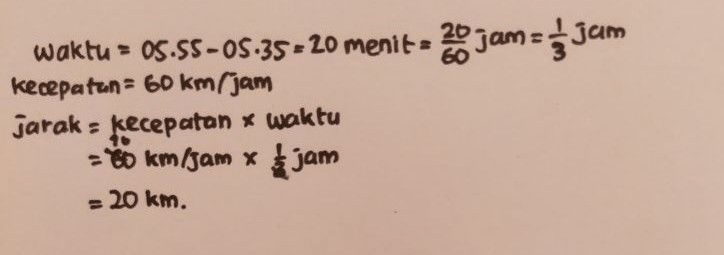 waktu = 05.55 - 05.35 = 20 menit = 20/60 jam = 1/3 jam
kecepatan = 60 km/jam
jarak = kecepatan x waktu
= 60 km/jam x 1/3 jam
= 20 km.